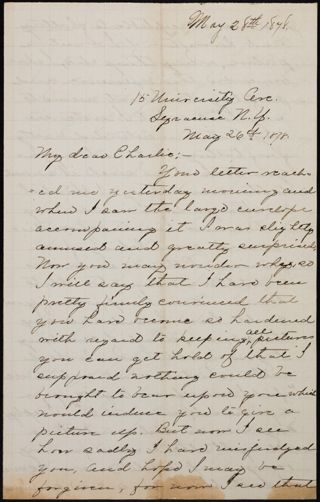 May 28th 1878.
15 University Ave.
Syracuse N.Y.
May 26th 1878
My dear Charlie;-
Your letter reach-
ed me yesterday morning and
when I saw the large envelope
accompaning it I was slightly
amused and greatly surprised.
Now you may wonder why, so
I will say that I have been
pretty firmly convinced that
you have become so hardened
with regard to keeping all pictures
you can get hold of that I
supposed nothing could be
brought to bear upon you which
would induce you to give a
picture up. But now I see
how sadly I have misjudged
you, and hope I may be
forgiven, for now I see that